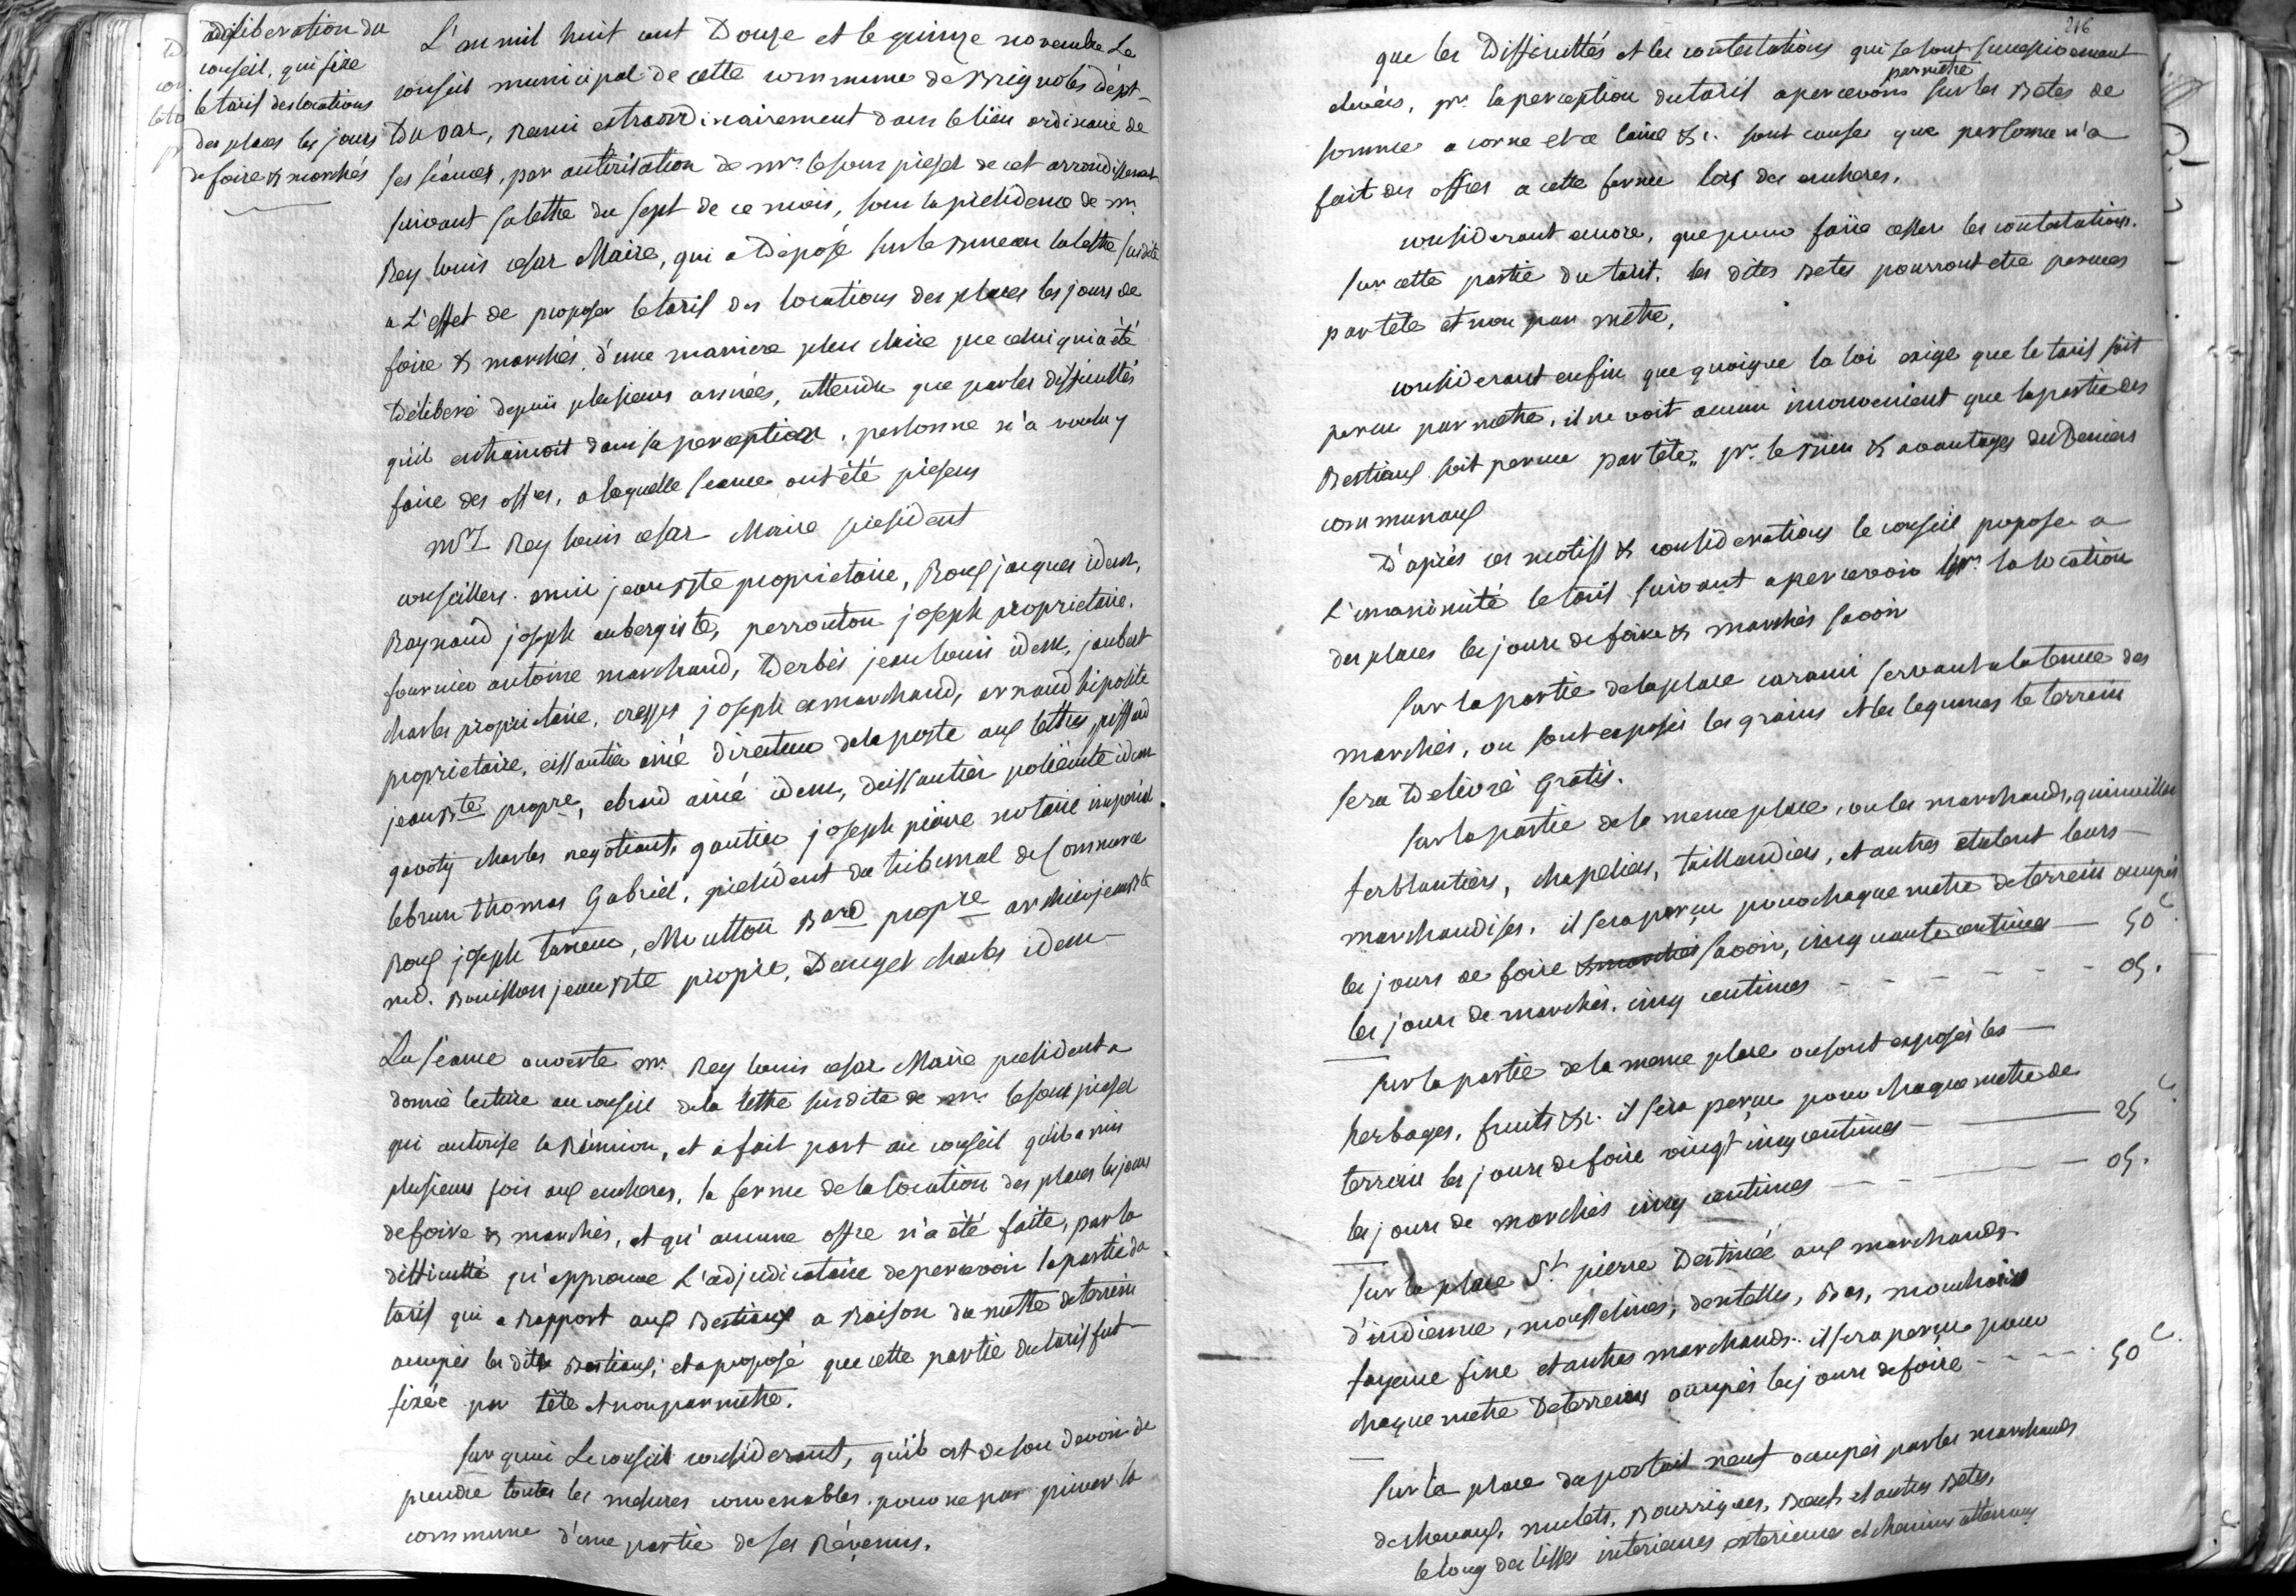 deliberation du
conseil, qui fixe
le tarif des locations
des places les jours
de foire & marchés
L'an mil huit cent Douze et le quinze novembre Le
conseil municipal de cette commune de Brignoles dépt.
Du var, Réuni extraordinairement dans le lieu ordinaire de
ses séances, par autorisation de mr. le sous prefet de cet arrondissement
suivant sa lettre du sept de ce mois, sous la présidence de mr.
Rey louis cesar Maire, qui a Déposé sur le Bureau la lettre susdite
a L'effet de proposer le tarif des locations des places les jours de
foire & marchés d'une maniere plus claire que celui qui a été
Délibéré depuis plusieurs années, attendu que par les difficultés
qu'il entrainoit dans sa perception, personne n'a voulu y
faire des offres, a laquelle seance ont été présens
Rey louis cesar Maire président
conseillers. jean Bte proprietaire, Roux jacques idem,
Raynaud joseph aubergiste, perrouton joseph proprietaire,
fournier antoine marchand, Derbés jean louis idem, joubert
charles proprietaire, joseph exmarchand, arnaud hipolite
proprietaire, eissautier ainé directeur de la poste aux lettres,
jean Bte propre, ebrard ainé idem, deissautier idem
gavoty charles negotiant, gautier joseph pierre notaire imperial
lebrun thomas Gabriel, président du tribunal de Commerce
Roux joseph taneur, Moutton Bard propre jean Bte
md. Bouisson jean Bte propre, Dauget charles idem
La séance ouverte mr. Rey louis cesar Maire président a
donné lecture au conseil de la lettre susdite de mr. le sous prefet
qui autorise la Réunion, et a fait part au conseil qu'il a mis
plusieurs fois aux encheres, la ferme de la location des places les jours
de foire & marchés, et qu'aucune offre n'a été faite, par la
difficulté qu'epprouve L'adjudicataire de percevoir la partie du
tarif qui a Rapport aux Bestiaux a Raison du mettre de terrein
occupés les dits Bestiaux; et a proposé que cette partie du tarif fut
fixée par tête et non par metre.
Sur quoi Le conseil considerant, qu'il est de son devoir de
prendre toutes les mesures convenables pour ne pas priver la
commune d'une partie de ses Révenus.
216
que les Difficultés et les contestations qui se sont successivement
elevées, pr. la perception du tarif a percevoir par metre sur les Betes de
somme a corne et a laine &c. sont causes que personne n'a
fait des offres a cette ferme lors des encheres.
considerant encore, que pour faire cesser les contestations
sur cette partie du tarif, les dites Betes pourront etre percues
par tête et non par métre,
considerant enfin que quoique la loi exige que le tarif soit
percu par metre, il ne voit aucun inconvenient que la partie des
Bestiaux soit percue par tête, pr. le Bien & avantages des Deniers
communaux
D'après ces motifs & considerations le conseil propose a
L'unanimité le tarif suivant a percevoir pr. la location
des places les jours de foire & marchés savoir
Sur la partie de la place carami servant a la tenue des
marchés, ou sont exposés les grains et les legumes le terrein
sera Délivré Gratis.
Sur la partie de la meme place, ou les marchands, quincailler
ferblantiers, chapeliers, taillandiers, et autres etalent leurs
marchandises, il sera perçu pour chaque metre de terrein occupés
les jours de foire & marchés savoir, cinquante centimes — 50 c.
les jours de marchés, cinq centimes - - - - - 05.
Sur la partie de la meme place ou sont exposés les
herbages, fruits &c. il sera perçu pour chaque metre de
terrein les jours de foire vingt cinq centimes — 25 c.
les jours de marchés cinq centimes — 05.
Sur la place St. pierre Destinée aux marchands
d'indienne, mousselines, dentelles, Bas, mouchoirs
fayence fine et autres marchands. il sera perçu pour
chaque metre De terrein occupés les jours de foire - - - - 50 c.
Sur la place du portail neuf occupés par les marchands
de chevaux, mulets, Bourriques, Beufs et autres Betes,
le long des lisses interieures exterieures et chemins attenans